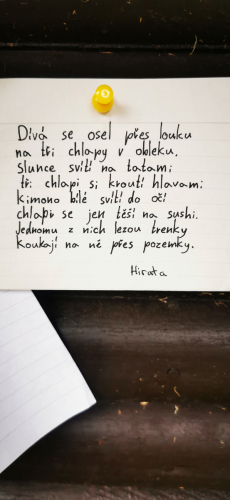 Dívá se osel přes louku
na tři chlapy v obleku.
Slunce svítí na tatami
tři chlapi si kroutí hlavami
kimono bílé svítí do očí
chlapi se jen těší na sushi.
Jednomu z nich lezou trenky
koukají na ně přes pozemky.
Hirata